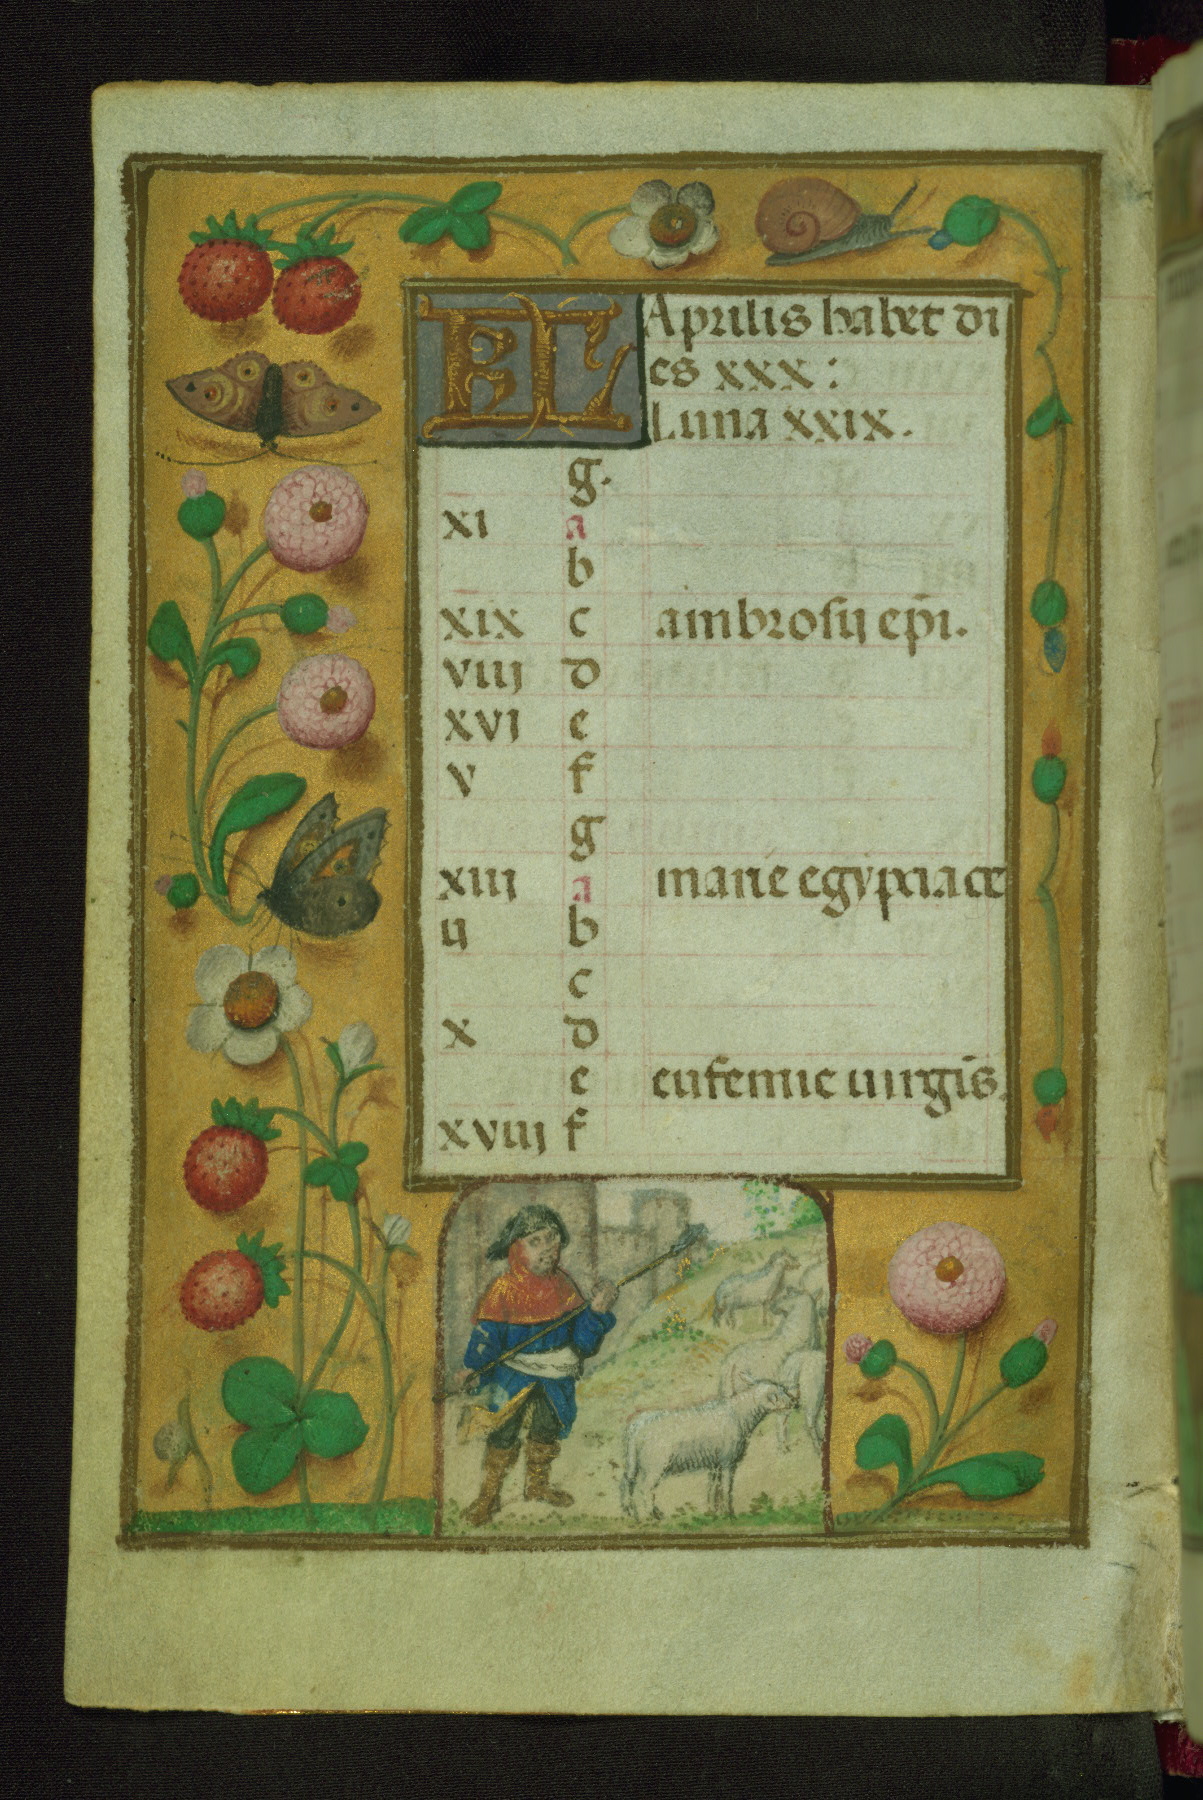 KL Aprilis habet di
es xxx :
Luna xxix.
g.
xi a
b
xix c ambrosij ep̄i.
viij d
xvi e
v f
g
xiij a marie egyptiace
ij b
c
x d
e eufemie uirgīs.
xviij f